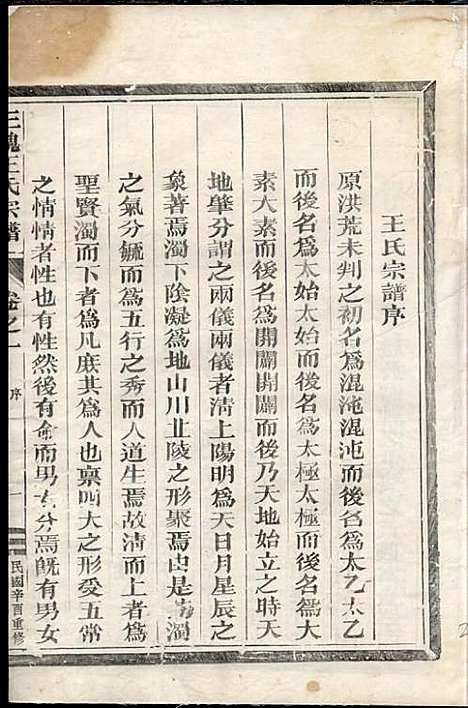 王氏宗譜序
原洪荒未判之初名爲混沌混沌而後名爲太乙太乙
而後名爲太始太始而後名爲太極太極而後名爲大
素大素而後名爲開闢開闢而後乃天地始立之時天
地肇分謂之兩儀兩儀者清上陽明爲天日月星辰之
象著焉濁下陰凝爲地山川丘陵之形聚焉由是濁
之氣分毓而爲五行之秀而人道生焉故清而上者爲
聖賢濁而下者爲凡庶其爲人也稟四大之形受五常
之情情者性也有性然後有命而男女分焉既有男女
三槐王氏宗譜
卷之一
序
一
民國辛酉重修